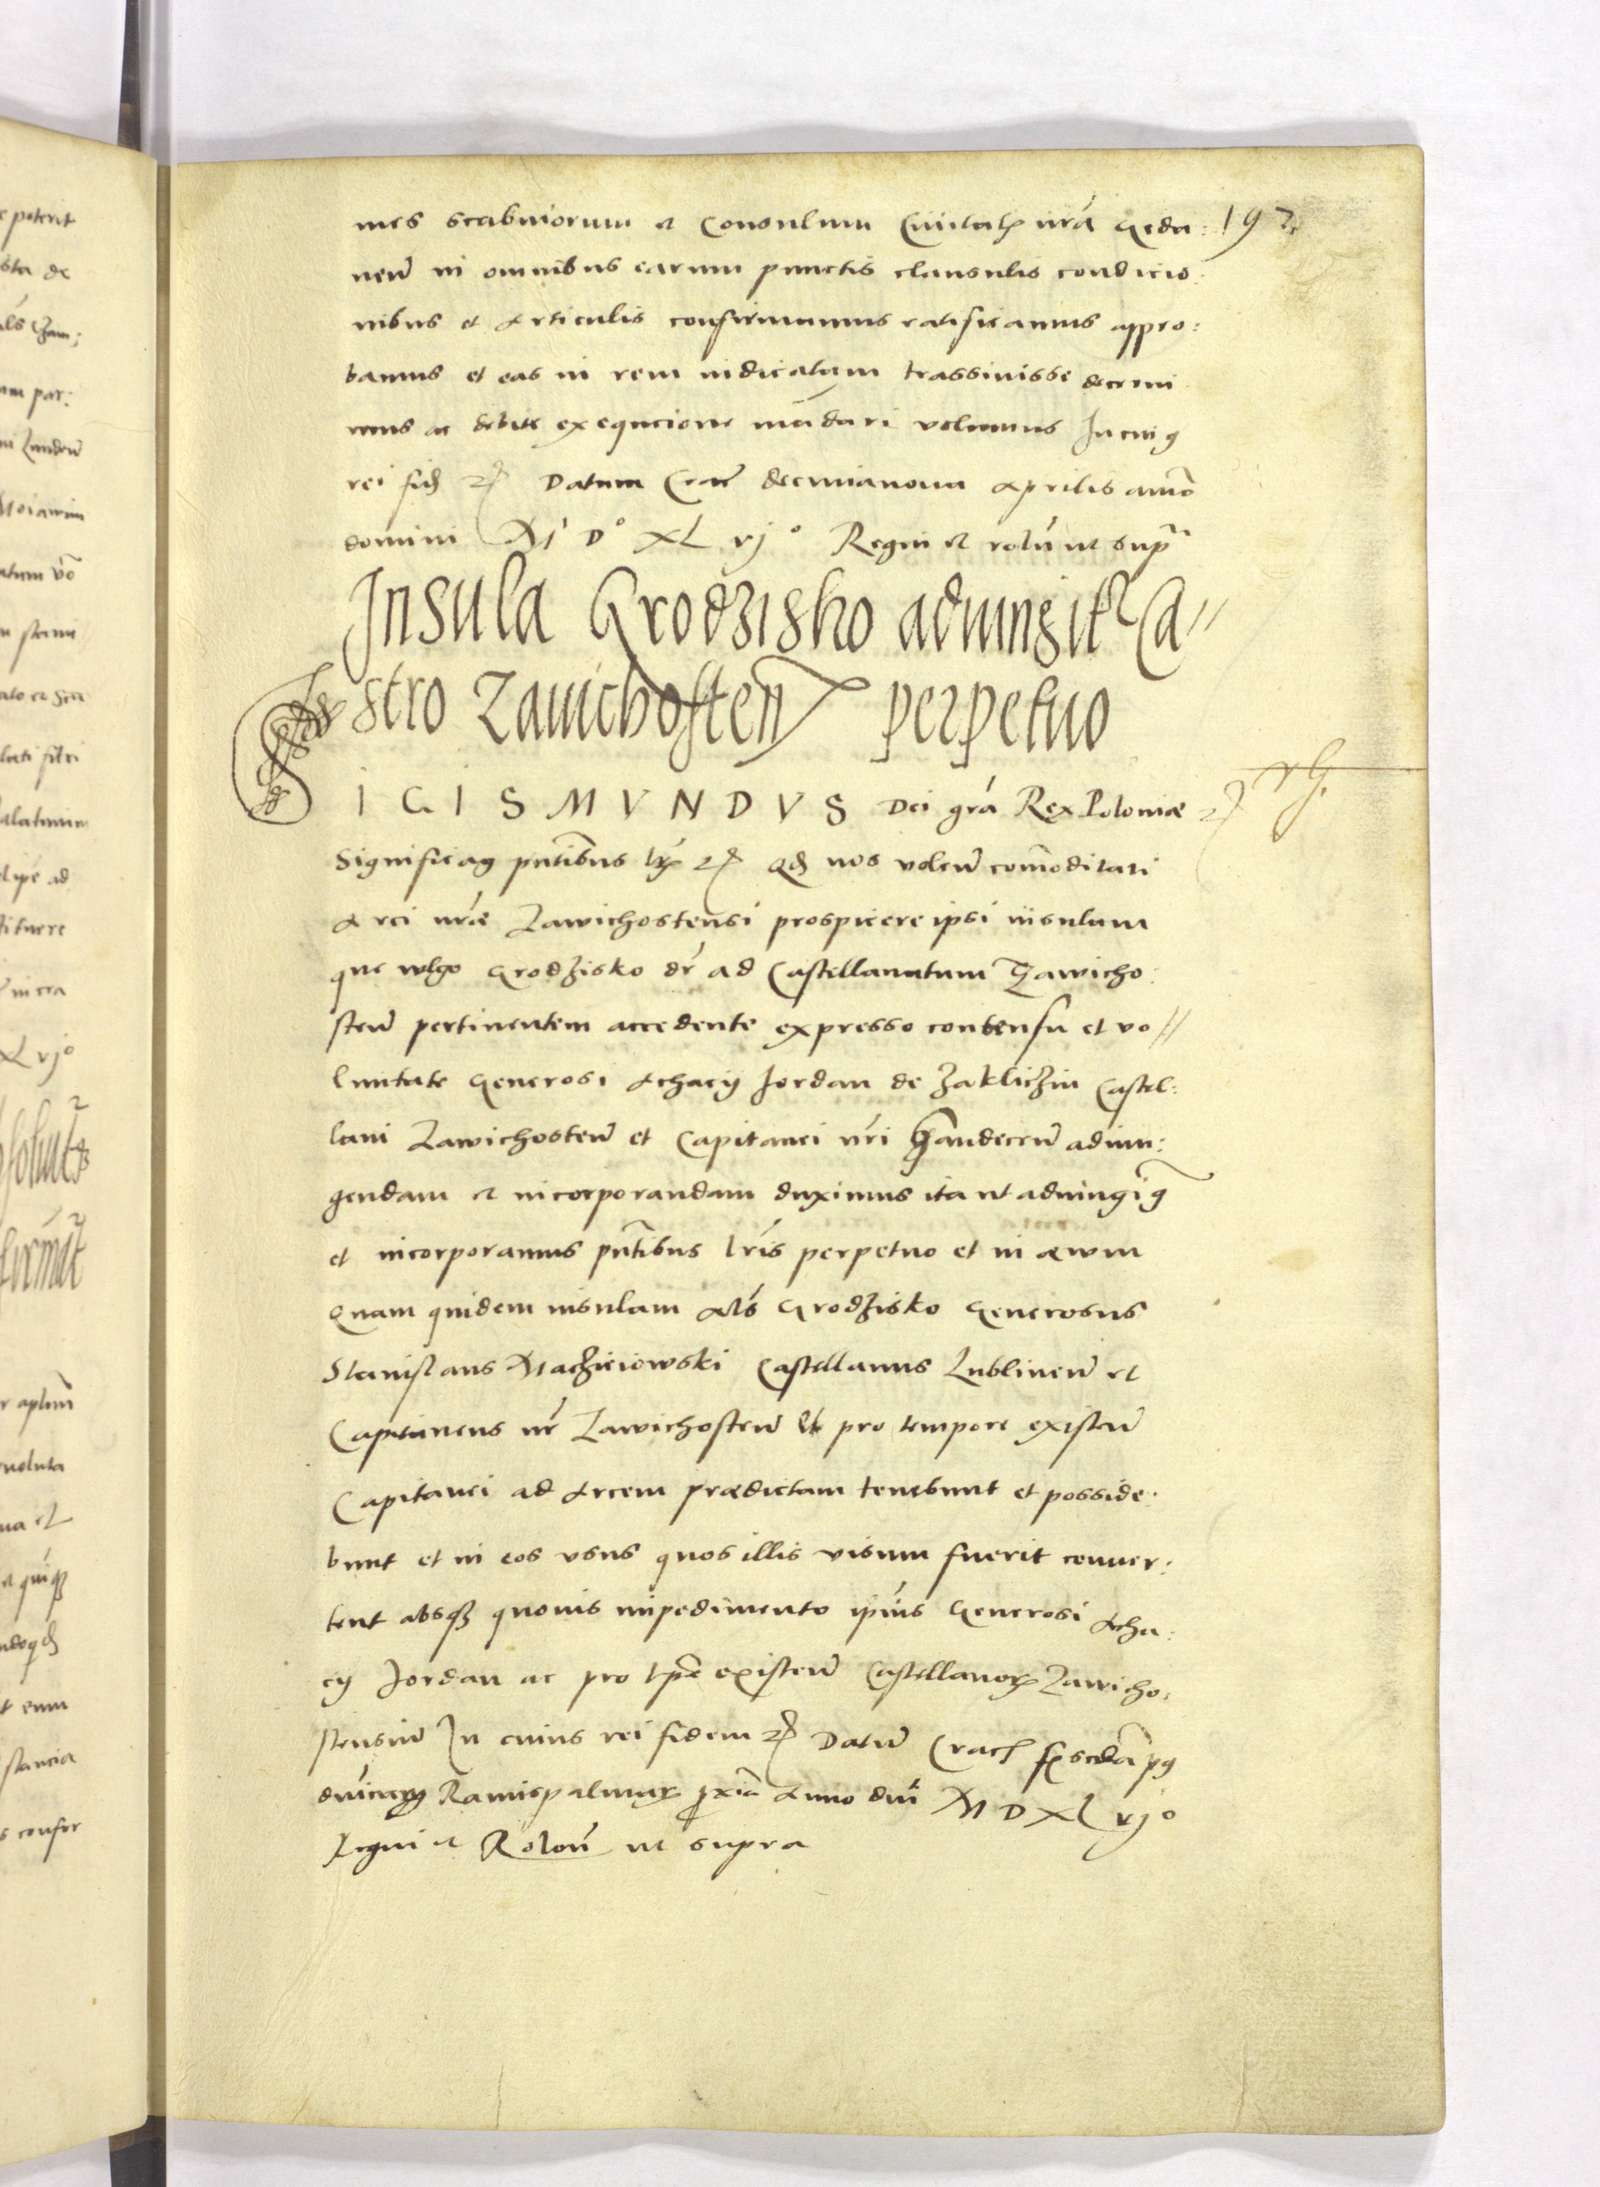 mes scabinorum et Consulum Ciuitat͡ nrá Geda: 197
nen̄ in omnibus earum punctis clausulis condicio:
nibus et Articulis confirmamus ratificamus appro:
bamus et eas in rem iudicatam trassiuisse decerni
mus ac debite exequcione mādari volumus In cuiꝯ
rei fid ꝛc̃ Datum Crac̄ decimanona Aprilis anno
domini M° D° XL vj° Regni et rolu̅ ut supr̃
Insula Grodzisko adiungitr̃ Ca//
stro Zauichosten̄ perpetuo
SIGISMVNDVS Dei grá Rex Poloniæ ꝛc̃
Significaꝯ pn̄tibus lr̃ꝭ ꝛc̃ Qd nos volen̄ com̄oditati
Arci nr̃æ Zawichostensi prospicere ipsi insulam
que wlgo Grodzisko dr̃ ad Castellanatum Zawicho:
sten̄ pertinentem accedente expresso consensu et vo//
luntate Generosi Achacij Jordan de Zakliczin Castel:
lani Zawichosten̄ et Capitanei nr̃i Sandecen̄ adiun:
gendam et incorporandam duximus ita ut adiungīꝯ
et incorporamus pn̄tibus lr̃is perpetuo et in æwm
Quam quidem insulam als̃ Grodzisko Generosus
Stanislaus Macziciowski Castellanus Lublinen̄ et
Capitaneus nr̃ Zawichosten̄ et pro tempore existen̄
Capitanei ad Arcem prædictam tenebunt et posside:
bunt et in eos vsus quos illis visum fuerit conuer:
tent absqꝫ quouis impedimento ipius Generosi Acha:
cij Jordan ac pro tp̃e existen̄ Castellanorꝝ Zawicho:
stensiu̅ In cuius rei fidem ꝛc̃ Datu̅ Crac̄ fꝭ scd̃a pꝯ
dn̄icam Ramispalmarꝝ ꝓxiā Anno dn̄i M D XL vj°
Regni et Rolon̄ ut supra